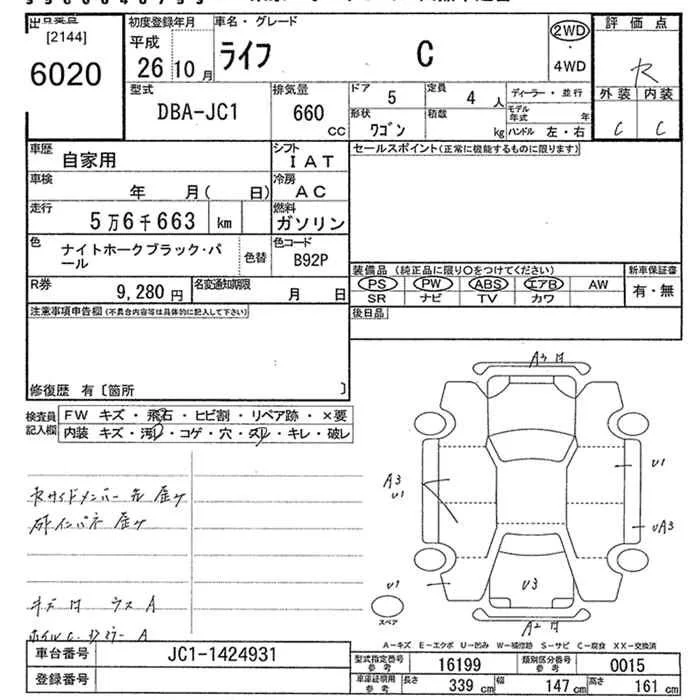 [2144]
6020
初度登録年月
平成
26 10 月
車名・グレード
ライフ C
2WD
・
4WD
評価点
R
外装 内装
C C
型式
DBA-JC1
排気量
660
CC
ドア 5
定員 4 人
形状 ワゴン
積数 kg
ディーラー・並行
モデル年式 年
ハンドル 左・右
車歴 自家用
シフト IAT
車検 年 月( 日)
冷房 AC
走行 5万6千663 km
燃料 ガソリン
色 ナイトホークブラック・パール
色替
色コード B92P
R券 9,280 円
名変通知期限 月 日
セールスポイント(正常に機能するものに限ります)
装備品 (純正品に限り○をつけてください)
PS PW ABS エアB AW
SR ナビ TV カワ
新車保証書
有・無
後日品
注意事項申告欄 (不具合内容等は具体的に記入して下さい)
修復歴 有〔箇所 〕
検査員記入欄
FW キズ・飛石・ヒビ割・リペア跡・×要
内装 キズ・汚レ・コゲ・穴・スレ・キレ・破レ
A3
U1
U1
UA3
U3
U1
スペア
A-キズ E-エクボ U-凹み W-補修跡 S-サビ C-腐食 XX-交換済
車台番号 JC1-1424931
登録番号
型式指定番号 参考 16199
類別区分番号 参考 0015
車庫証明用 参考
長さ 339 cm 幅 147 cm 高さ 161 cm